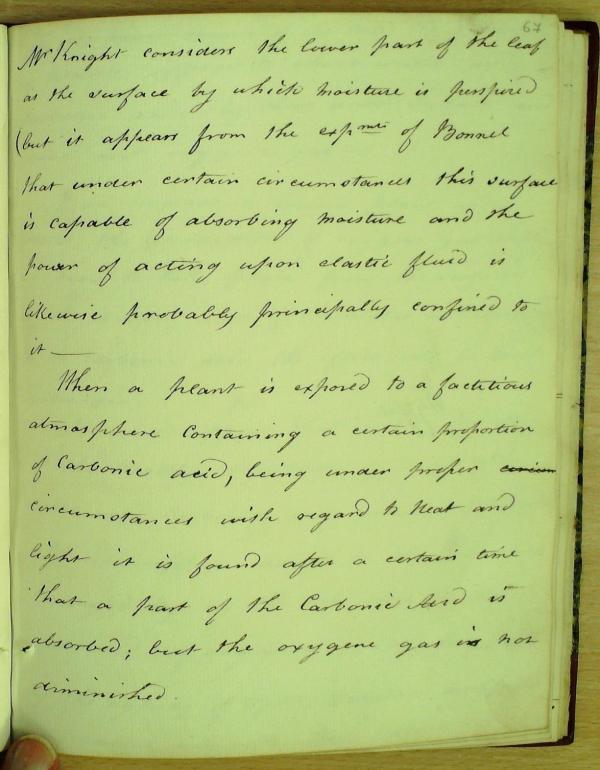 67
Mr Knight considers the lower part of the leaf
as the surface by which moisture is perspired
(but it appears from the expmts of Bonnel
that under certain circumstances this surface
is capable of absorbing moisture and the
power of acting upon elastic fluid is
likewise probably principally confined to
it —
When a plant is exposed to a factitious
atmosphere containing a certain proportion
of Carbonic acid, being under proper
circumstances with regard to heat and
light it is found after a certain time
that a part of the Carbonic Acid is
absorbed; but the oxygene gas is not
diminished.